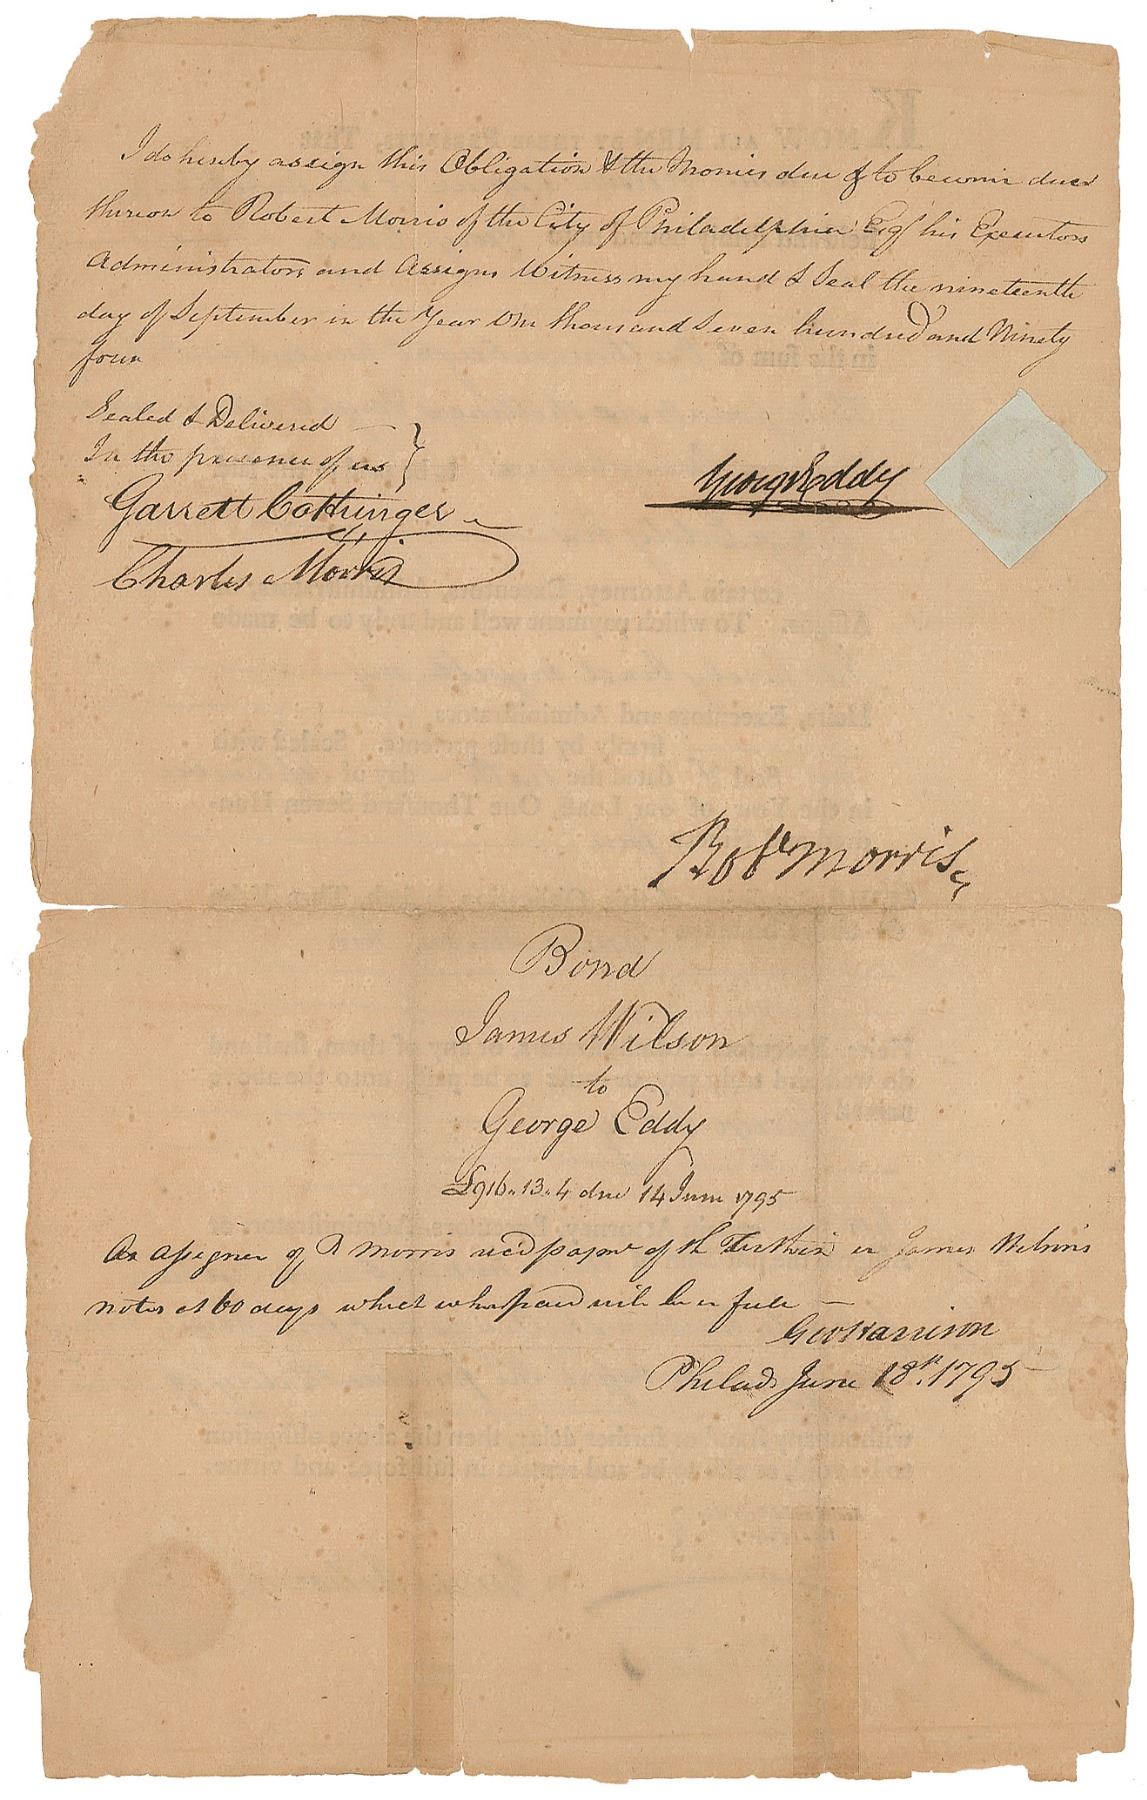 I do hereby assign this Obligation & the Monies due & to become due
thereon to Robert Morris of the City of Philadelphia Esqr his Executors
Administrators and Assigns Witness my hand & Seal the nineteenth
day of September in the Year One thousand Seven hundred and Ninety
four
Sealed & Delivered
In the presence of us
Garrett Cottringer
Charles Morris
George Eddy
Robt Morris
Bond
James Wilson
to
George Eddy
£916..13..4 due 14 June 1795
As assignee of R Morris rec'd paymt of the in James Wilsons
notes at 60 days which when paid will be in full
Geo Harrison
Philad. June 18th. 1795